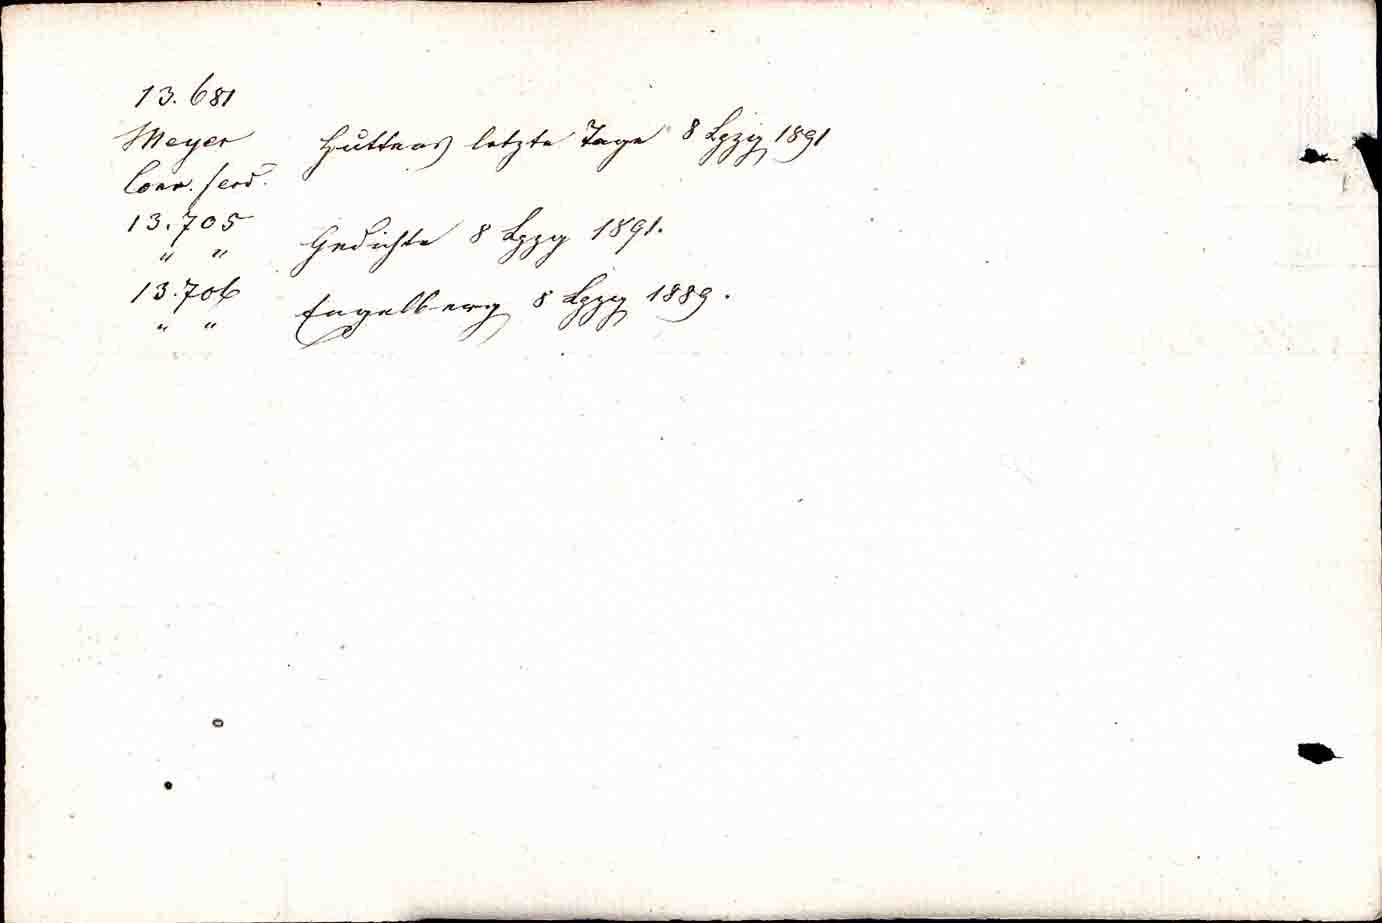 13.681
Meyer Huttens letzte Tage 8 Lpzg 1891
Conr. Ferd.
13.705
" " Gedichte 8 Lpzg 1891.
13.706
" " Engelberg 8 Lpzg 1889.